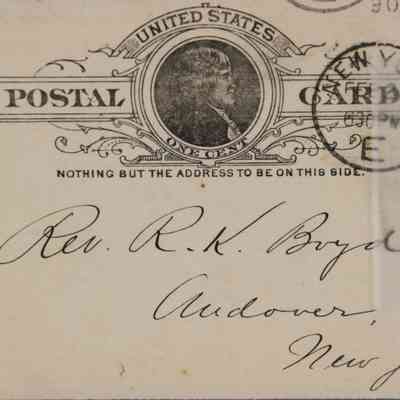 90
UNITED STATES
POSTAL CARD
ONE CENT
NEW Y
630PM
E
NOTHING BUT THE ADDRESS TO BE ON THIS SIDE.
Rev. R. K. Boyd
Andover,
New J